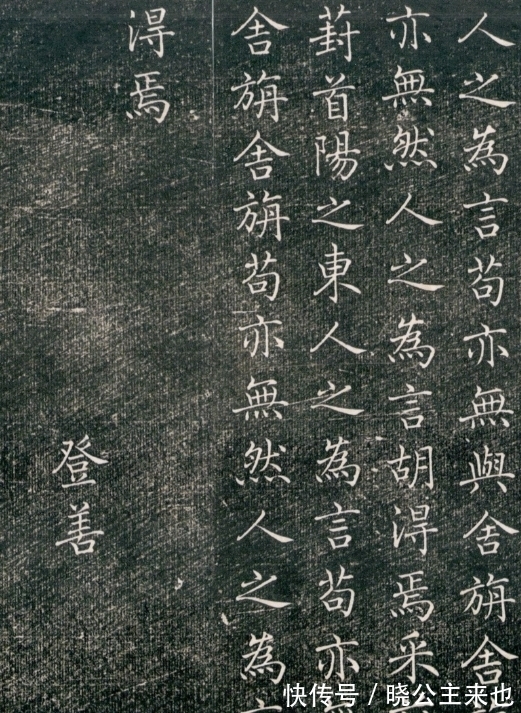 人之為言苟亦無與舍旃舍
亦無然人之為言胡淂焉采
葑首陽之東人之為言苟亦
舍旃舍旃苟亦無然人之為
淂焉
登善
快传号 / 晓公主来也